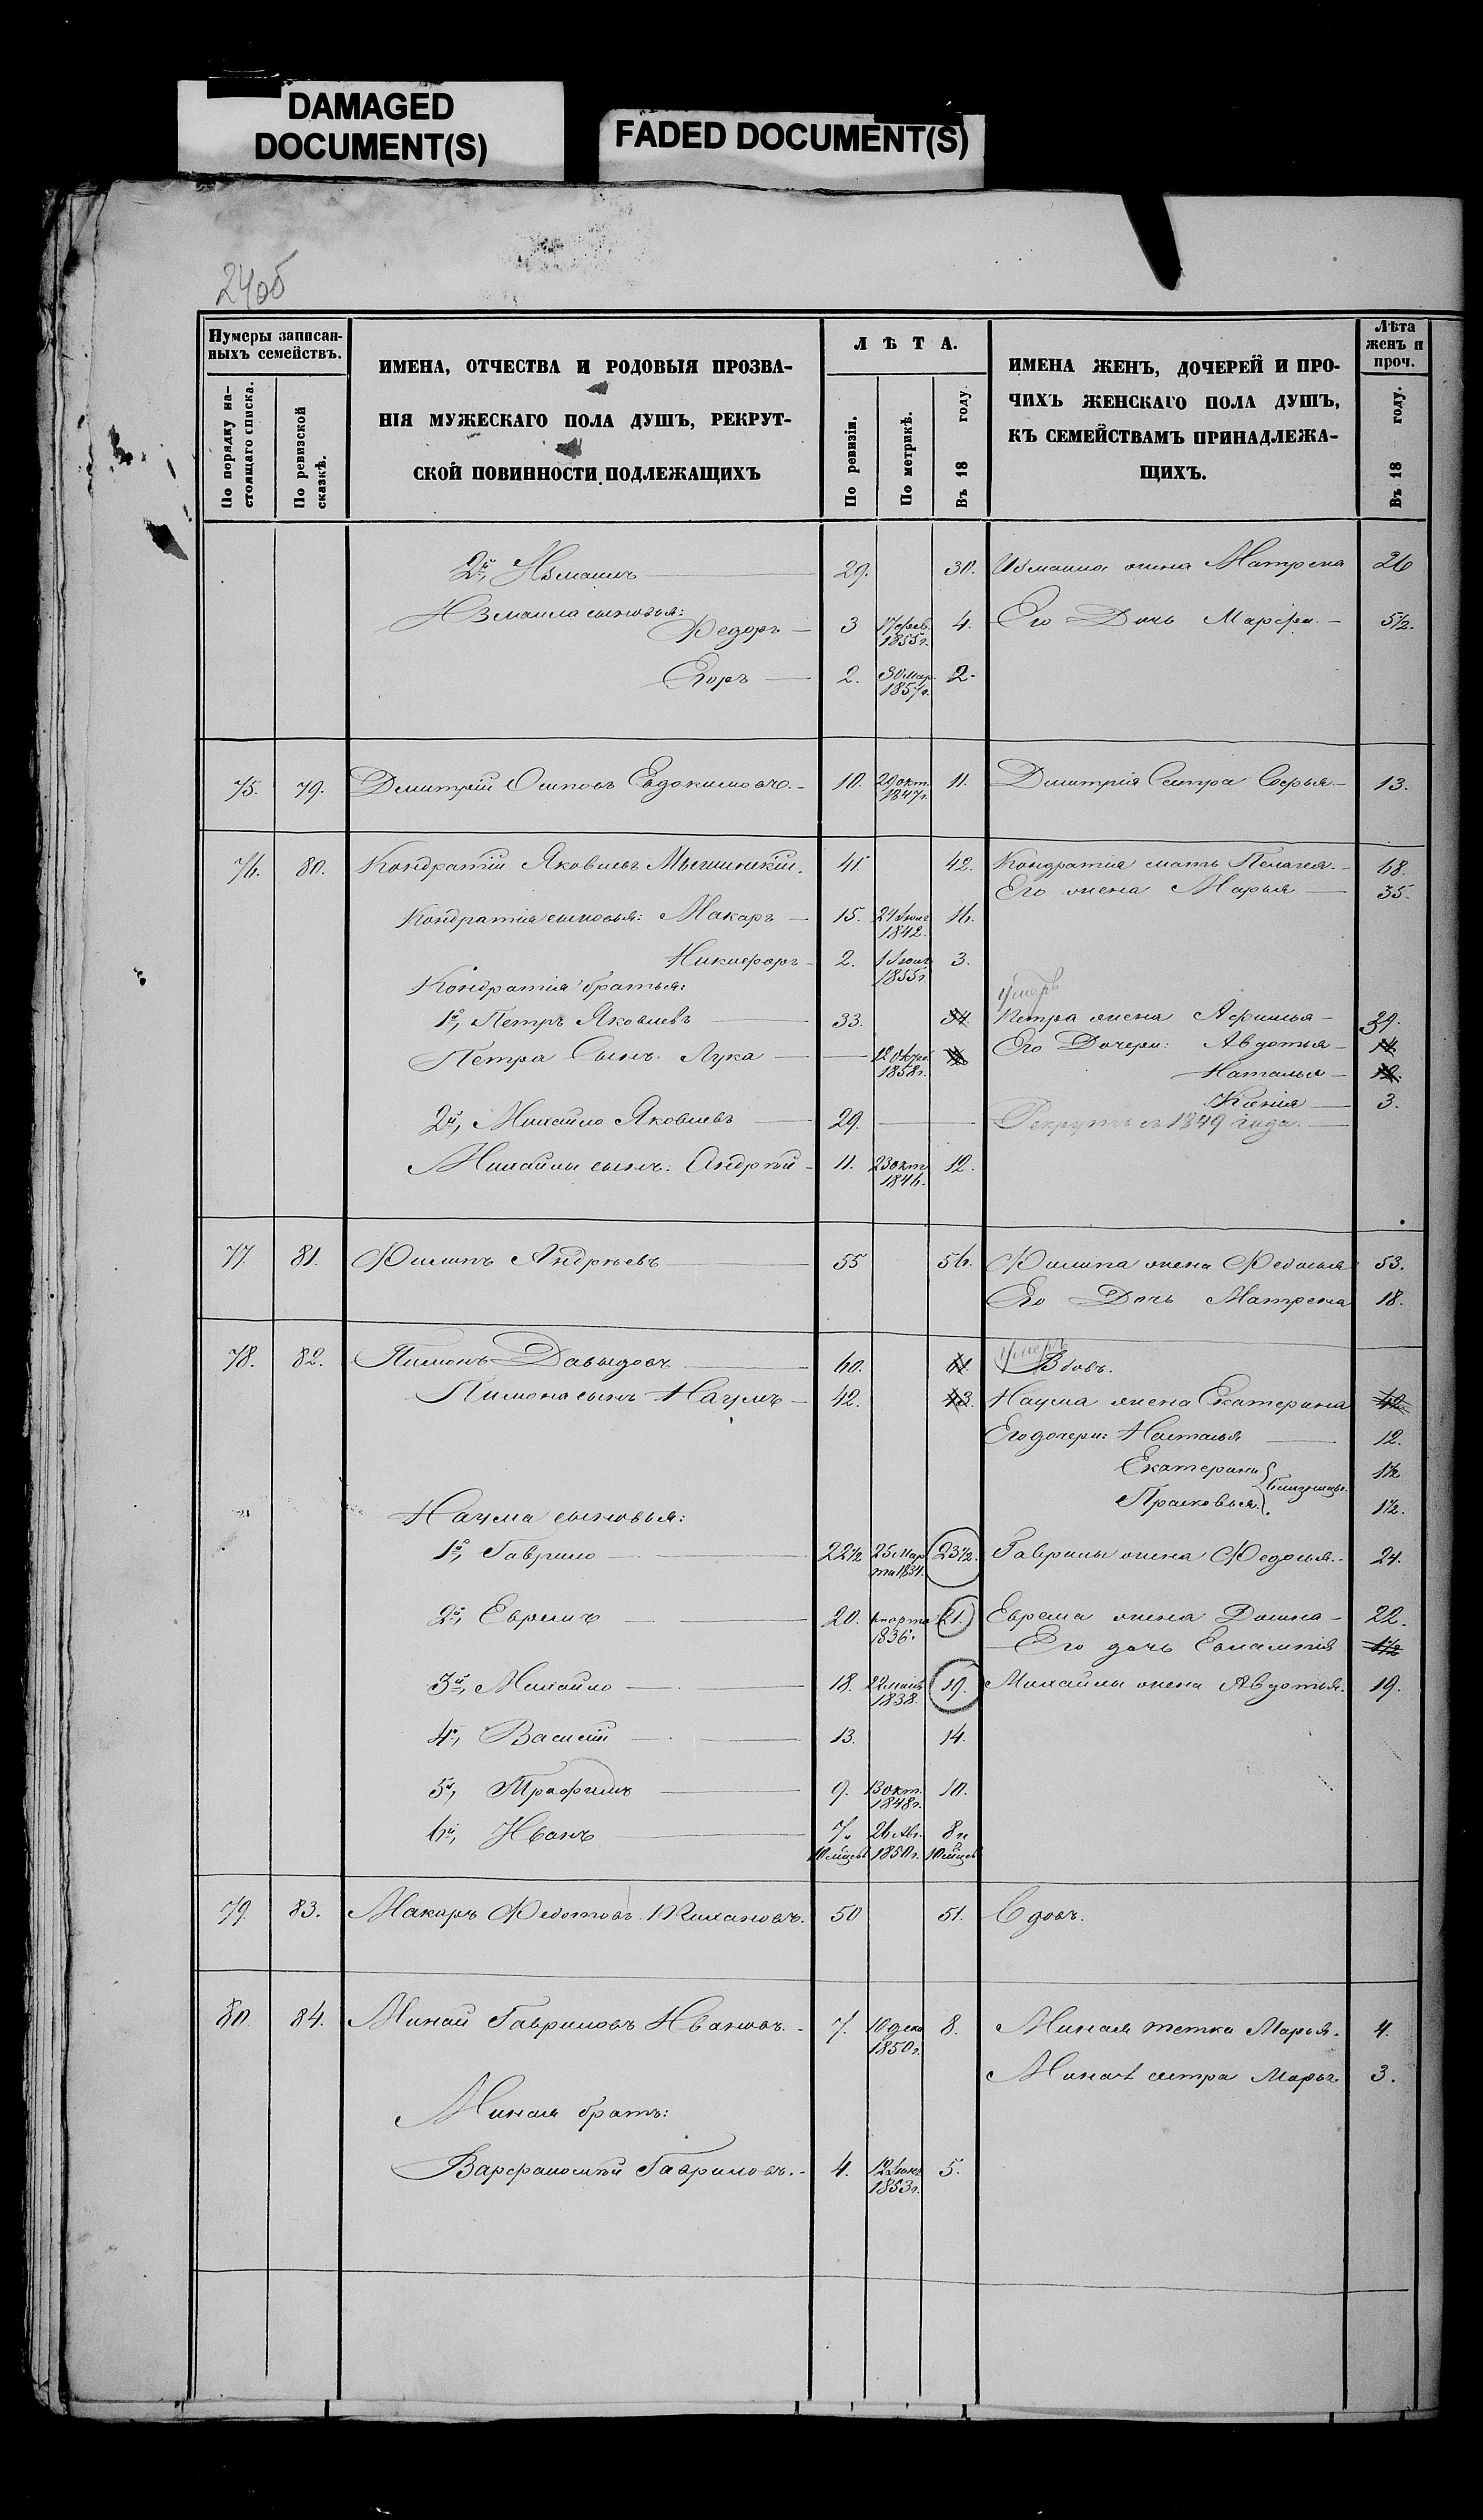 DAMAGED
DOCUMENT(S)
FADED DOCUMENT(S)
24об
Нумеры записан-
ныхъ семействъ.
По порядку на-
стоящаго списка.
По ревизской
сказкѣ.
ИМЕНА, ОТЧЕСТВА И РОДОВЫЯ ПРОЗВА-
НІЯ МУЖЕСКАГО ПОЛА ДУШЪ, РЕКРУТ-
СКОЙ ПОВИННОСТИ ПОДЛЕЖАЩИХЪ
Л Ѣ Т А.
По ревизіи.
По метрикѣ.
Въ 18 году.
ИМЕНА ЖЕНЪ, ДОЧЕРЕЙ И ПРО-
ЧИХЪ ЖЕНСКАГО ПОЛА ДУШЪ,
КЪ СЕМЕЙСТВАМЪ ПРИНАДЛЕЖА-
ЩИХЪ.
Лѣта
женъ и
проч.
Въ 18 году.
2й, Измаилъ 29. 30. Измаила жена Матрена 26
Измаила сыновья:
Федоръ 3 17 фев. 1855г. 4. Его Дочь Марфа 5½.
Егоръ 2. 30 мар. 1857г. 2.
75. 79. Дмитрій Осиповъ Евдокимовъ. 10. 29 окт. 1847г. 11. Дмитрія Сестра Софья 13.
76. 80. Кондратій Яковлевъ 41. 42. Кондратія мать Пелагея. 68.
Его жена Марья 35.
Кондратія сыновья: Макаръ 15. 1842. 16.
Никифоръ 2. 1855г. 3.
Кондратія братья:
умеръ
1й, Петръ Яковлевъ 33. 34. Петра жена Афимья 39.
Петра Сынъ Лука 1858г. Его Дочери: Авдотья 14.
Наталья 12.
Ксенія 3.
2й, Михайло Яковлевъ 29. Рекрутъ съ 1849 года.
Михайлы сынъ: Андрѣй 11. 23 окт. 1846. 12.
77. 81. Филипъ Андрѣевъ 55 56. Филипа жена Федосья 53.
Его Дочь Матрена 18.
умеръ
78. 82. Пимонъ Давыдовъ 60. 61. Вдовъ.
Пимона сынъ Наумъ 42. 43. Наума жена Екатерина 42
Его дочери: Наталья 12.
Екатерина 1½
Прасковья близнецы. 1½.
Наума сыновья:
1й, Гаврило 22½ 25 марта 1834. 23½. Гаврилы жена Федосья. 24.
2й, Ефремъ 20. 1836г. 21. Ефрема жена Домна 22.
Его дочь Евлампія 1½
3й, Михайло 18. 22 1838. 19. Михайлы жена Авдотья. 19.
4й, Василій 13. 14.
5й, Трофимъ 9. 13 окт. 1848г. 10.
6й, Иванъ 7 и 26 Авг. 8 и
10 мѣсец. 1850г. 10 мѣсец.
79. 83. Макаръ Федотовъ 50 51. Вдовъ.
80. 84. Минай Гавриловъ Ивановъ. 7. 10 дек. 1850г. 8. Миная тетка Марья. 4.
Миная сестра Марья 3.
Миная братъ:
Варфаломѣй Гавриловъ. 4. 12 Іюня 1853г. 5.